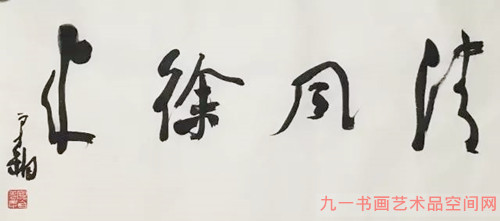 清风徐来
九一书画艺术品空间网